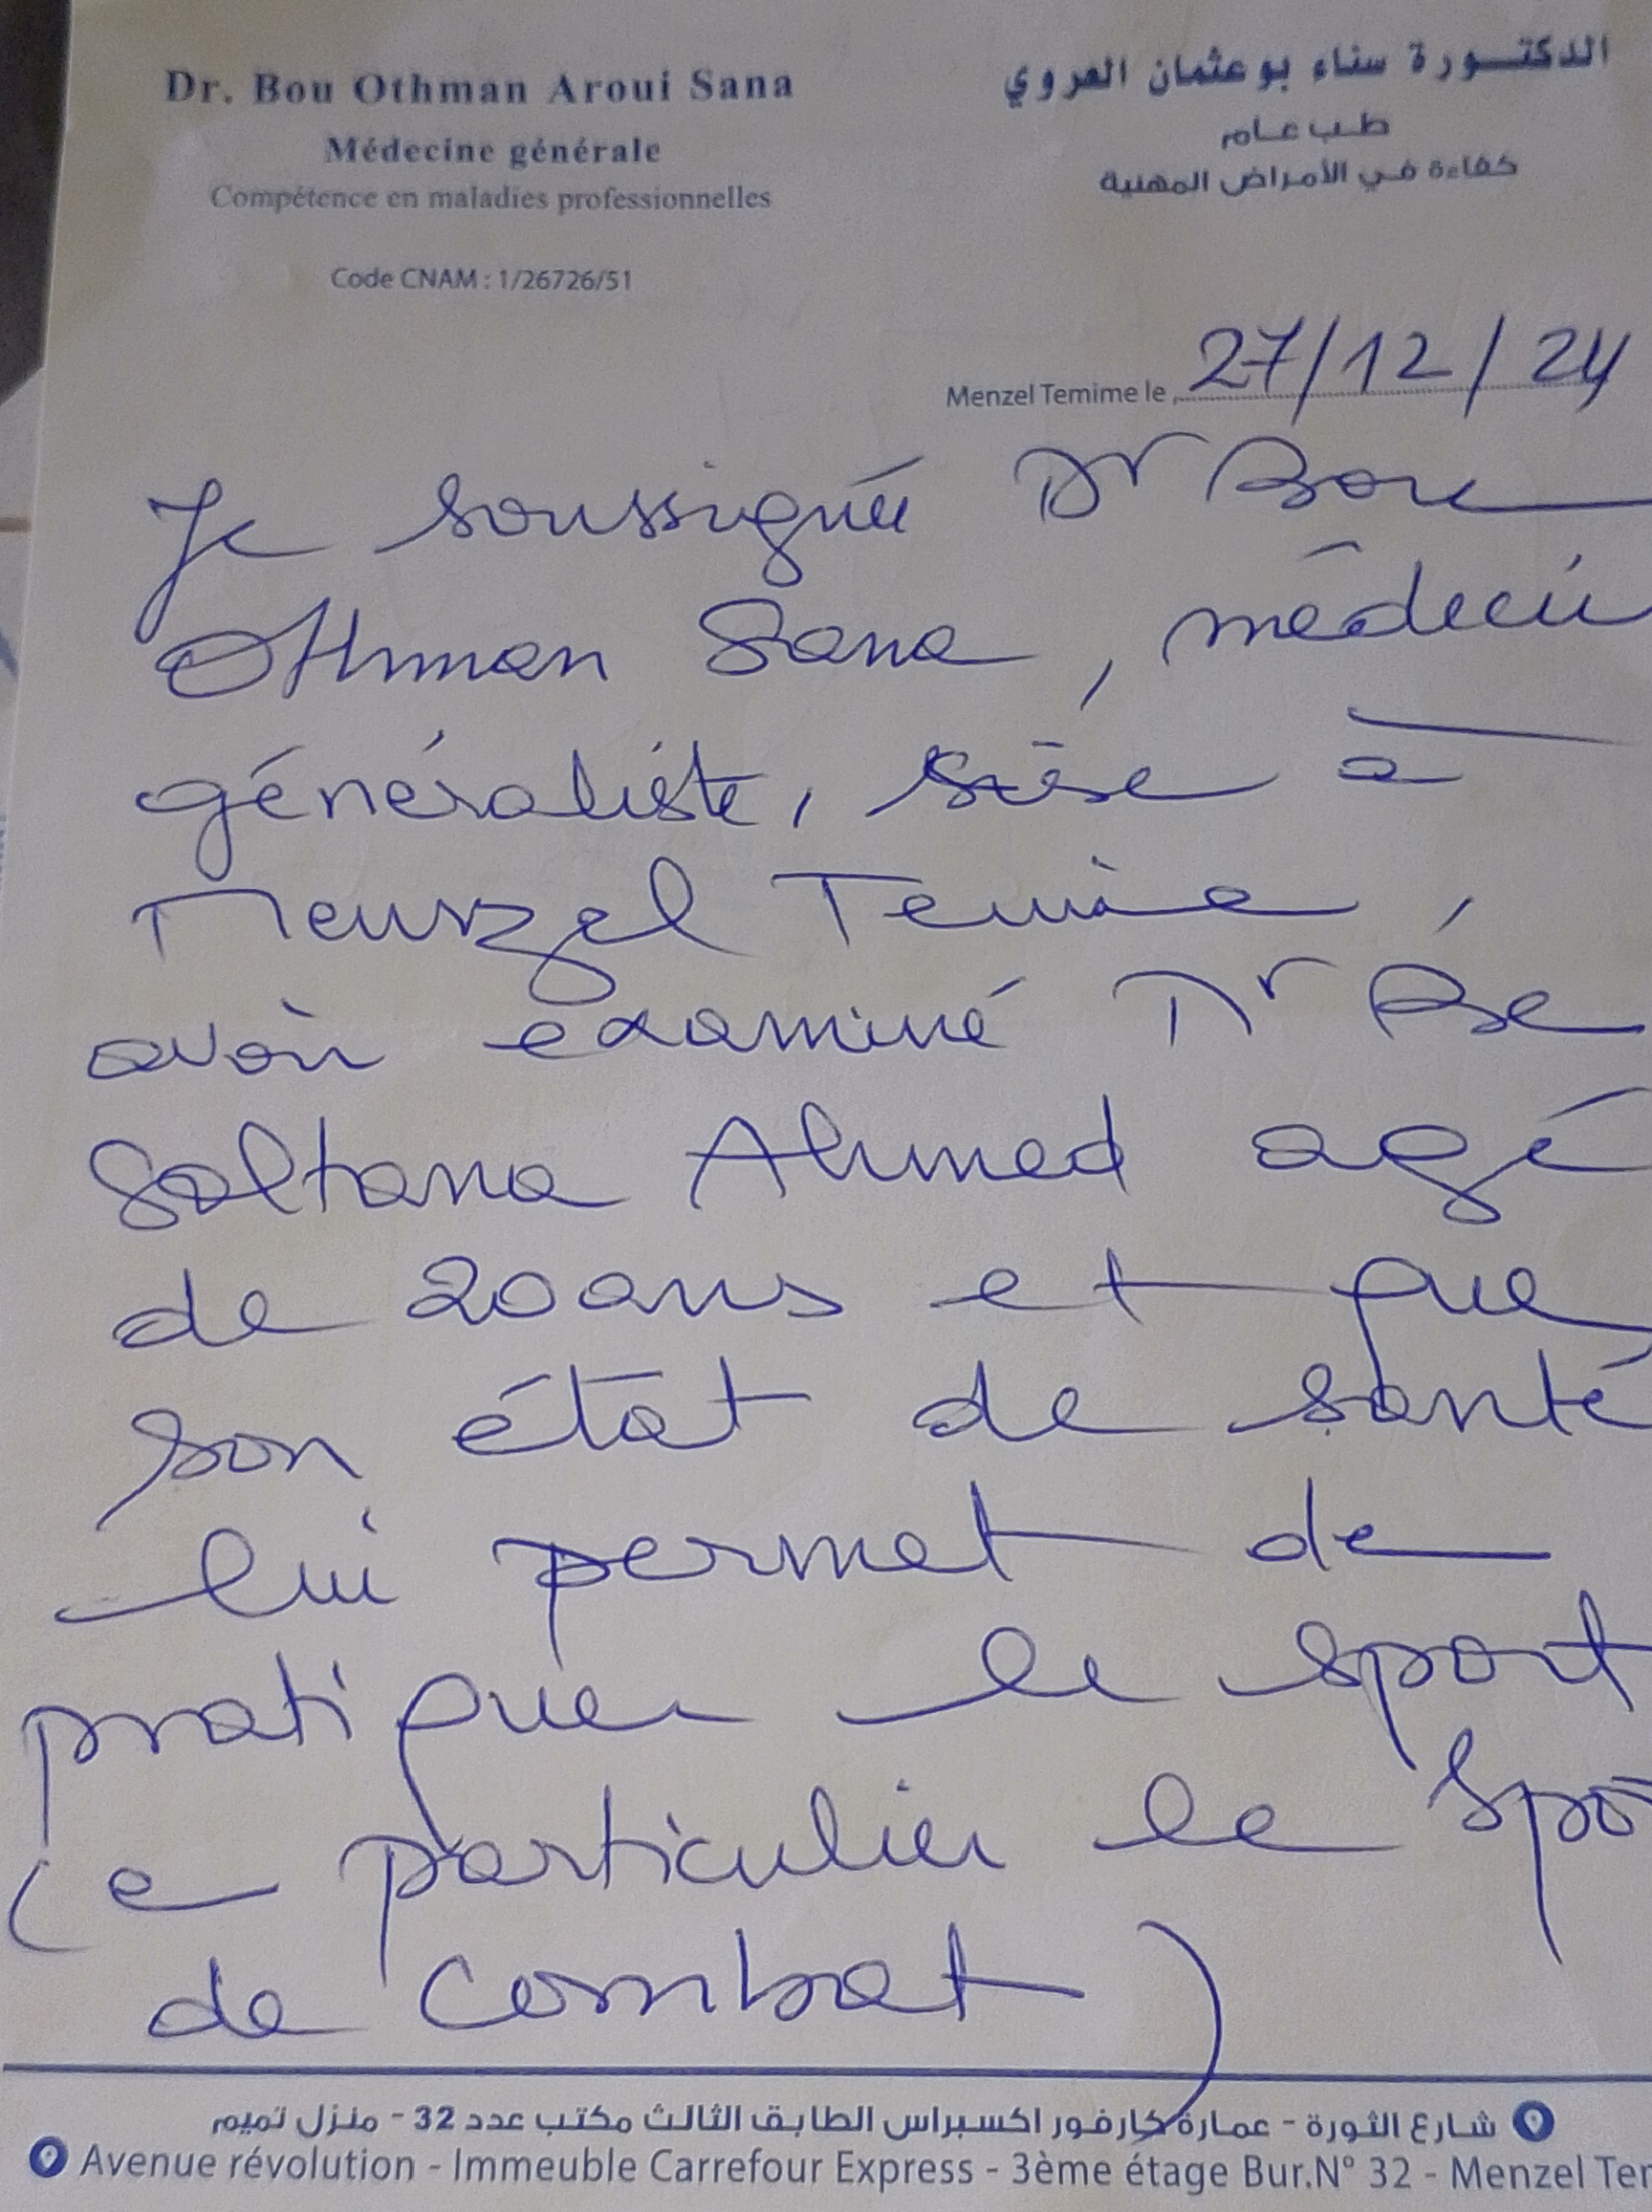 Dr. Bou Othman Aroui Sana
Médecine générale
Compétence en maladies professionnelles
Code CNAM : 1/26726/51
الدكتورة سناء بوعثمان العروي
طب عام
كفاءة في الأمراض المهنية
Menzel Temime le, 27/12/24
Je soussignée Dr Bou
Othman Sana, médecin
généraliste, sise à
Menzel Temime,
avoir examiné Dr Be
Soltana Ahmed agé
de 20 ans et que
son état de santé
lui permet de
pratiquer le sport
(e particulier le spo
de combat)
شارع الثورة - عمارة كارفور اكسبراس الطابق الثالث مكتب عدد 32 - منزل تميم
Avenue révolution - Immeuble Carrefour Express - 3ème étage Bur.N° 32 - Menzel Ter